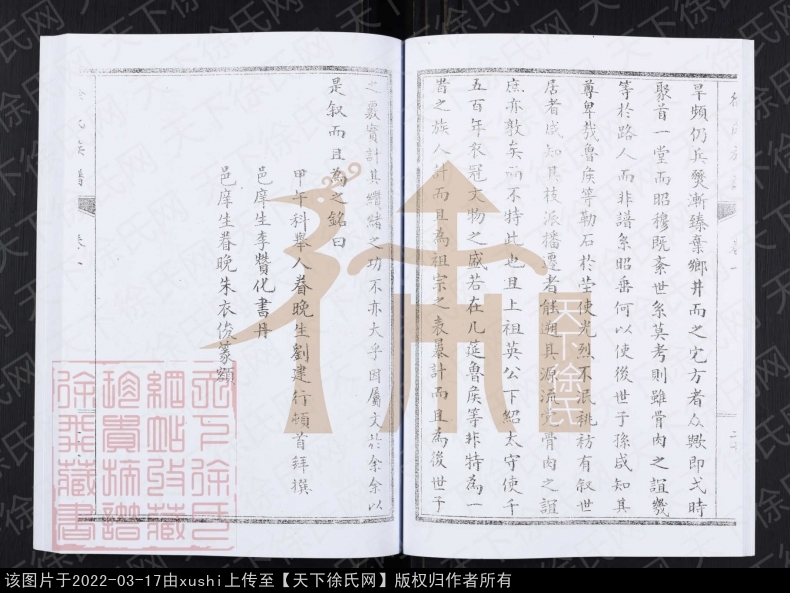 旱頻仍兵燹漸臻棄鄉井而之他方者众歟即弌時
聚首一堂而昭穆既紊世系莫考則雖骨肉之誼幾
等於路人而非譜系昭垂何以使後世子孫咸知其
尊卑哉魯矦等勒石於塋使光烈不泯祧祊有叙世
居者咸知其枝派播遷者能溯其源流
骨肉之誼
庶亦敦矣而不特此也且上祖英公下紹太守使千
五百年衣冠文物之盛若在几筵魯矦等非特為一
昔之族人計而且為祖宗之表暴計而且為後世子
之
計其纘緒之功不亦大乎因屬文於余余以
是叙而且為之銘曰
甲午科舉人眷晚生劉建行頓首拜撰
邑庠生李贊化書丹
邑庠生眷晚朱衣
篆額
徐氏族譜
卷一
天下徐氏
天下徐氏网
该图片于2022-03-17由xushi上传至【天下徐氏网】版权归作者所有